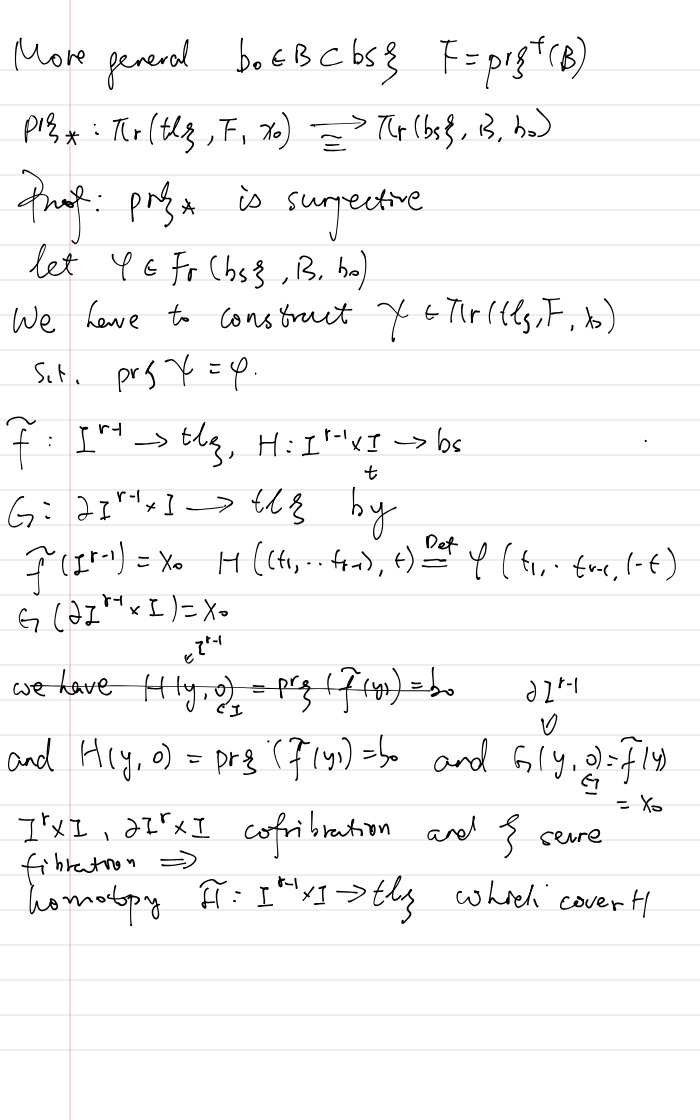 More general b₀ ∈ B ⊂ bsξ F = prξ⁺(B)
prξ⁎ : πr(tlξ, F, x₀) ⟶≅ πr(bsξ, B, b₀)
Proof: prξ⁎ is surjective
let φ ∈ Fr(bsξ, B, b₀)
We have to construct ψ ∈ πr(tlξ, F, x₀)
s.t. prξ ψ = φ.
f̃ : I^{r-1} → tlξ, H : I^{r-1} × I → bs
t
G : ∂I^{r-1} × I → tlξ by
f̃(I^{r-1}) = x₀ H((t₁, .. t_{r-1}), t) =^{Def} φ(t₁, .. t_{r-1}, 1-t)
G(∂I^{r-1} × I) = x₀
∈ I^{r-1}
we have H(y, 0) = prξ(f̃(y)) = b₀ ∂I^{r-1}
∈ I
and H(y, 0) = prξ(f̃(y)) = b₀ and G(y, 0) = f̃(y)
∈ I = x₀
I^r × I, ∂I^r × I cofribration and ξ serre
fibration ⇒
homotopy H̃ : I^{r-1} × I → tlξ which cover H